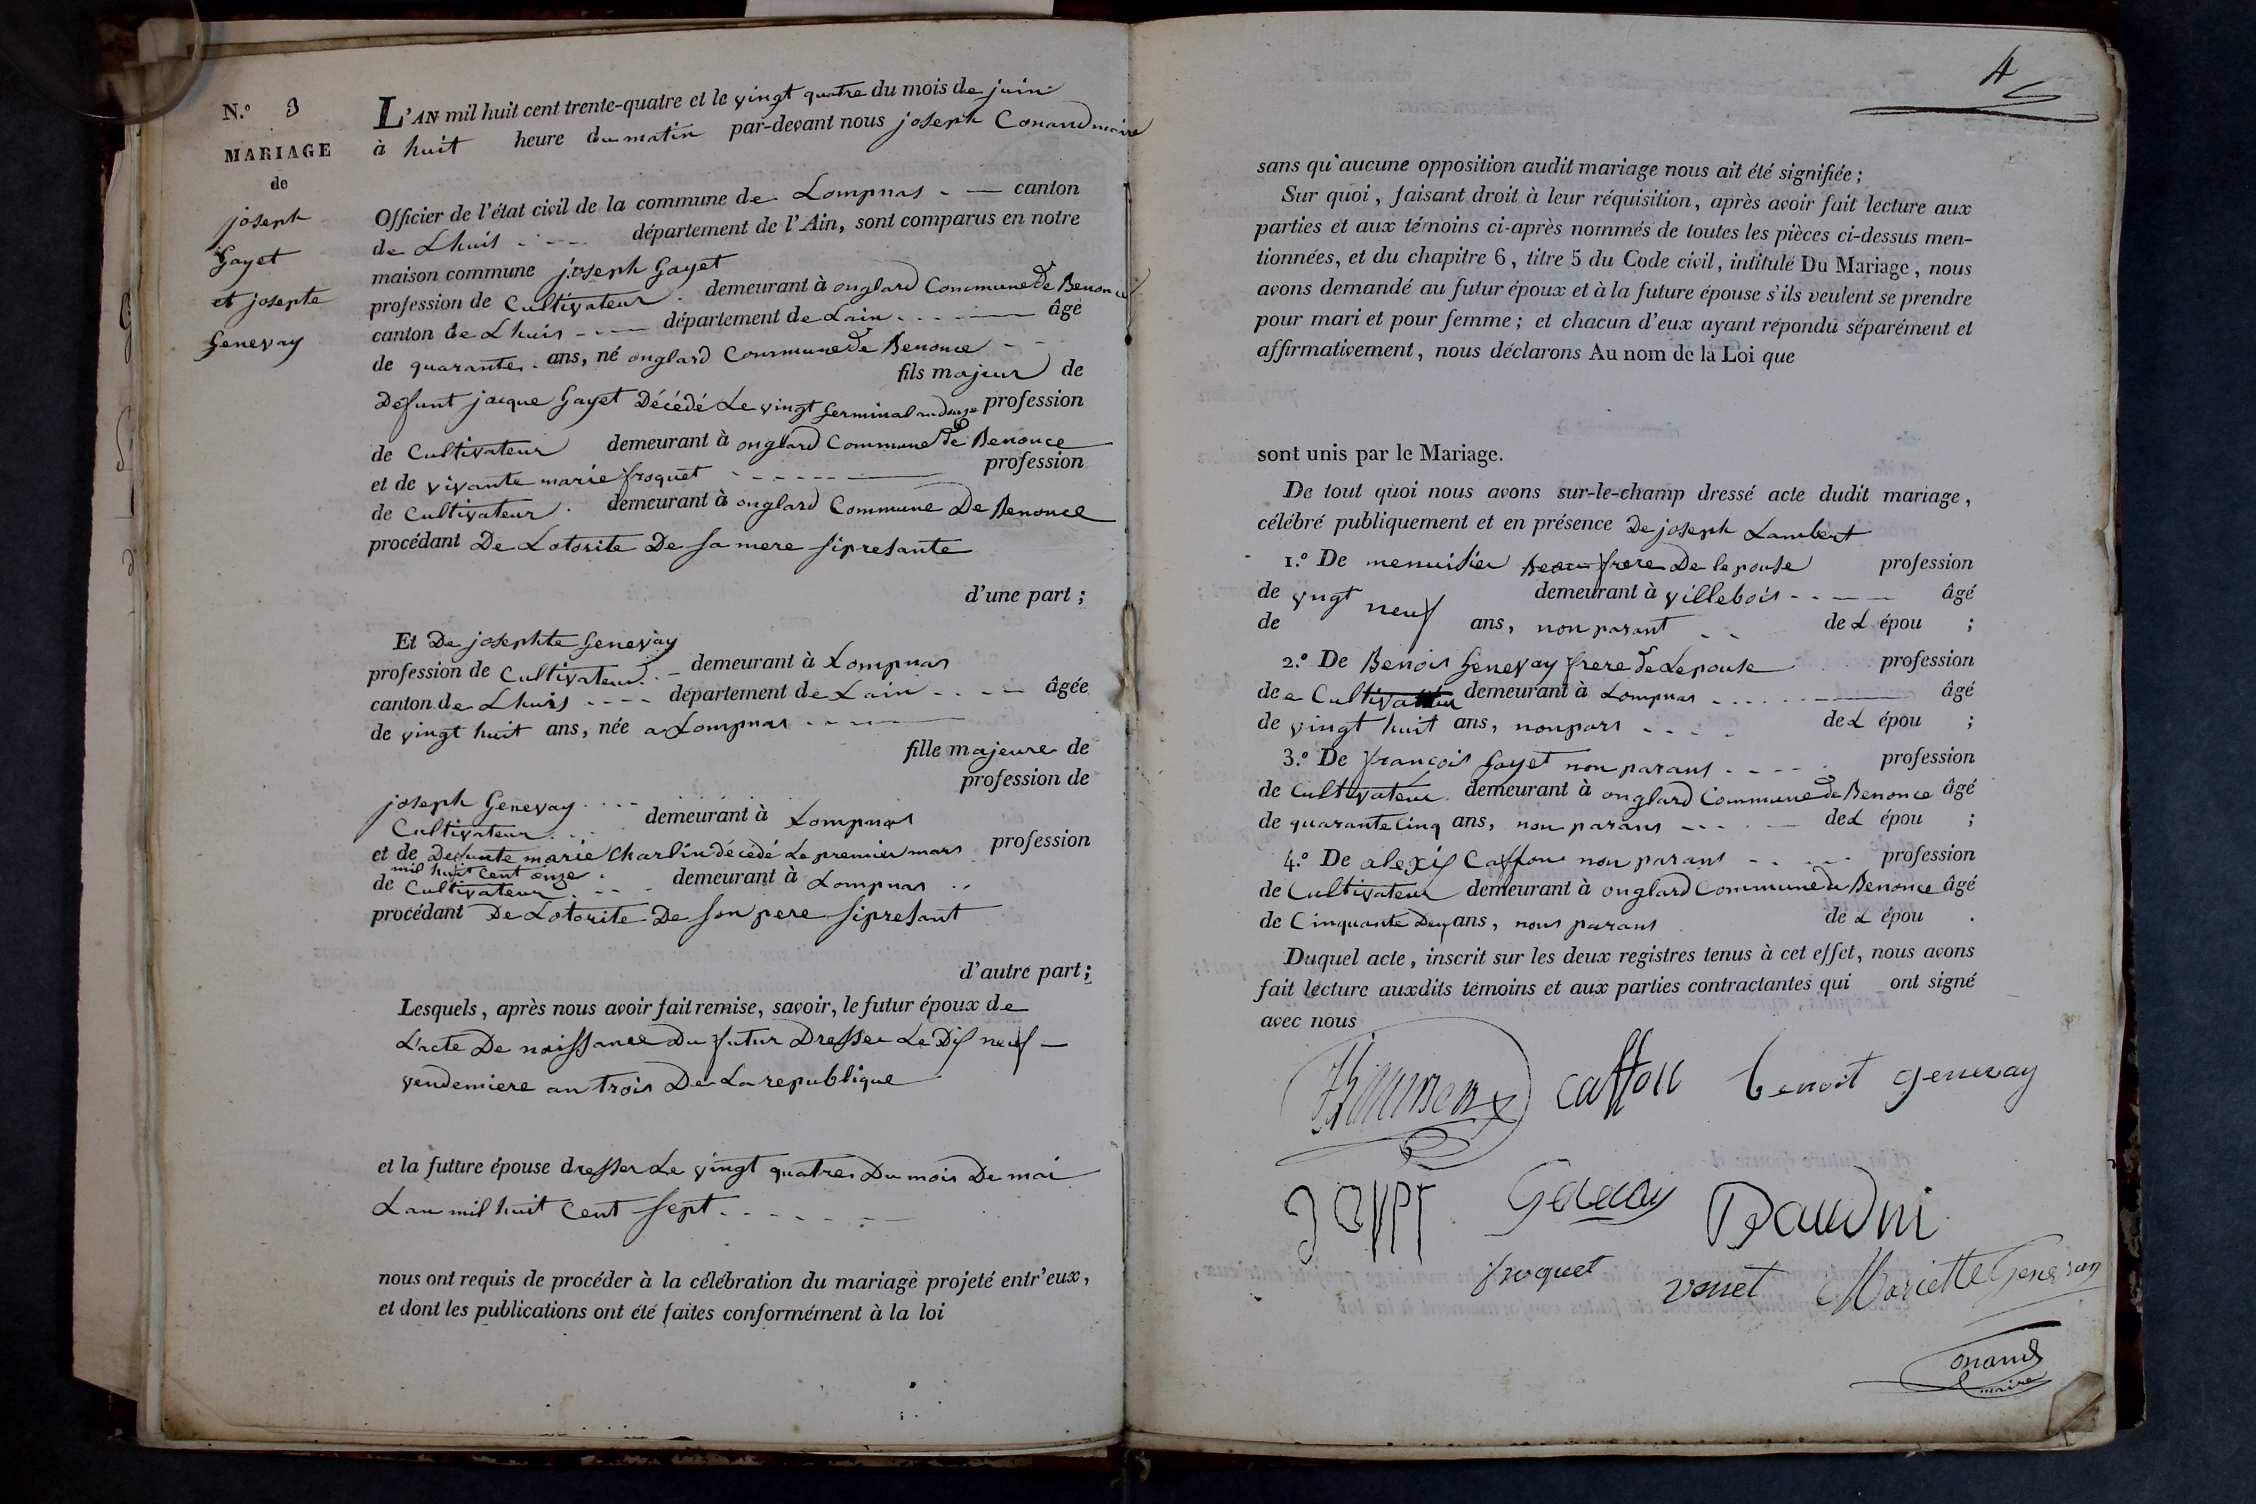 N.º 3
MARIAGE
de
joseph
Gayet
et josepte
Genevay
L'AN mil huit cent trente-quatre et le vingt quatre du mois de juin
à huit heure du matin par-devant nous joseph Conand maire
Officier de l'état civil de la commune de Lompnas canton
de Lhuis département de l'Ain, sont comparus en notre
maison commune joseph Gayet
profession de Cultivateur demeurant à onglard Commune de Benonce
canton de Lhuis département de Lain âgé
de quarante ans, né onglard Commune de Benonce
fils majeur de
Defunt jacque Gayet Décédé Le vingt Germinal an douze profession
de Cultivateur demeurant à onglard Commune de Benonce
et de vivante marie froquet profession
de Cultivateur demeurant à onglard Commune De Benonce
procédant De Lotorite De sa mere sipresante
d'une part ;
Et De josephte Genevay
profession de Cultivateur demeurant à Lompnas
canton de Lhuis département de Lain âgée
de vingt huit ans, née a Lompnas
fille majeure de
profession de
joseph Genevay
Cultivateur demeurant à Lompnas
et de Defunte marie Charlin décédé Le premier mars profession
mil huit cent onze
de Cultivateur demeurant à Lompnas
procédant De Lotorite De son pere sipresant
d'autre part ;
Lesquels, après nous avoir fait remise, savoir, le futur époux de
L'acte De naissance Du futur Dresser Le Dis neuf
vendemiere an trois De La republique
et la future épouse dresser Le vingt quatre Du mois De mai
Lan mil huit Cent sept
nous ont requis de procéder à la célébration du mariage projeté entr'eux,
et dont les publications ont été faites conformément à la loi
4
sans qu'aucune opposition audit mariage nous ait été signifiée ;
Sur quoi, faisant droit à leur réquisition, après avoir fait lecture aux
parties et aux témoins ci-après nommés de toutes les pièces ci-dessus men-
tionnées, et du chapitre 6, titre 5 du Code civil, intitulé Du Mariage, nous
avons demandé au futur époux et à la future épouse s'ils veulent se prendre
pour mari et pour femme ; et chacun d'eux ayant répondu séparément et
affirmativement, nous déclarons Au nom de la Loi que
sont unis par le Mariage.
De tout quoi nous avons sur-le-champ dressé acte dudit mariage,
célébré publiquement et en présence De joseph Lambert
1.º De menuisier beau frere De lepouse profession
de vngt demeurant à villebois âgé
de neuf ans, non parant de L épou ;
2.º De Benois Genevay frere de Lepouse profession
de a Cultivateur demeurant à Lompnas âgé
de vingt huit ans, non pars de L épou ;
3.º De françois Gayet non parans profession
de Cultivateur demeurant à onglard Commune de Benonce âgé
de quarante Cinq ans, non parans de L épou ;
4.º De alexis Caffon non parans profession
de Cultivateur demeurant à onglard Commune de Benonce âgé
de Cinquante Deux ans, nous parans de L épou .
Duquel acte, inscrit sur les deux registres tenus à cet effet, nous avons
fait lecture auxdits témoins et aux parties contractantes qui ont signé
avec nous
caffon benoit genevay
Genevay
froquet Mariette Genevay
Conand
maire